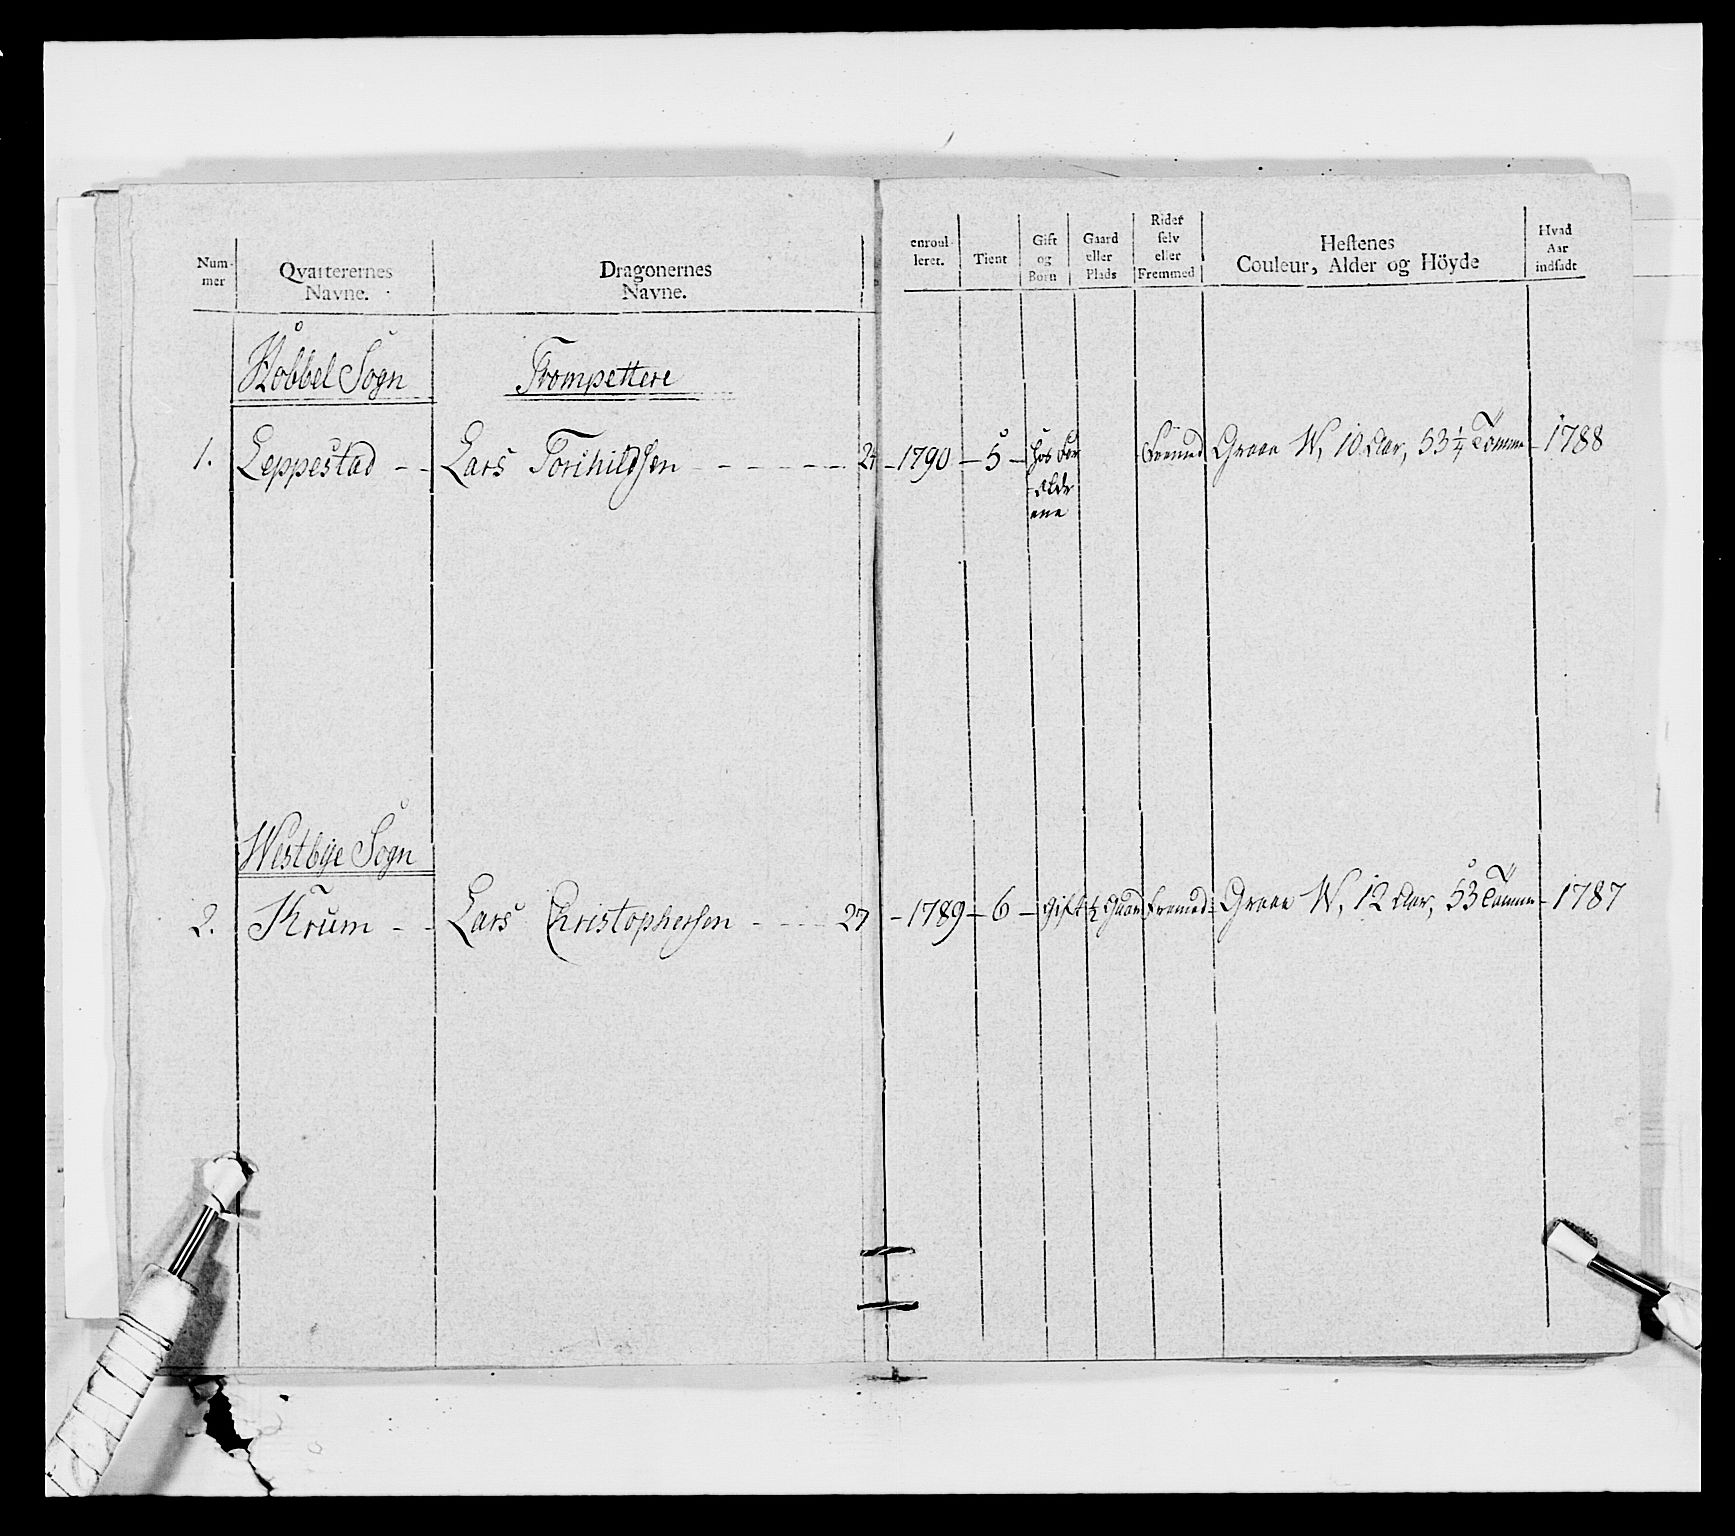 Num-
mer
Qvarterernes
Navne.
Dragonernes
Navne.
enroul-
leret.
Tient
Gift
og
Born
Gaard
eller
Plads
Rider
selv
eller
Fremmed
Hestenes
Couleur, Alder og Höyde
Hvad
Aar
indsadt
Sogn
Trompettere
1. Leppestad - - Lars Torchildsen - - - - - - 24 - 1790 - 5 - hos For Fremd Graae W, 10 Aar, 53 1/4 Tomme - 1788
ældr
ene
Westbÿe Sogn
2. Krum - - Lars Christophersen - - - - 27 - 1789 - 6 - gift 1/2 Gaard Fremed Graae W, 12 Aar, 53 Tomme - 1787